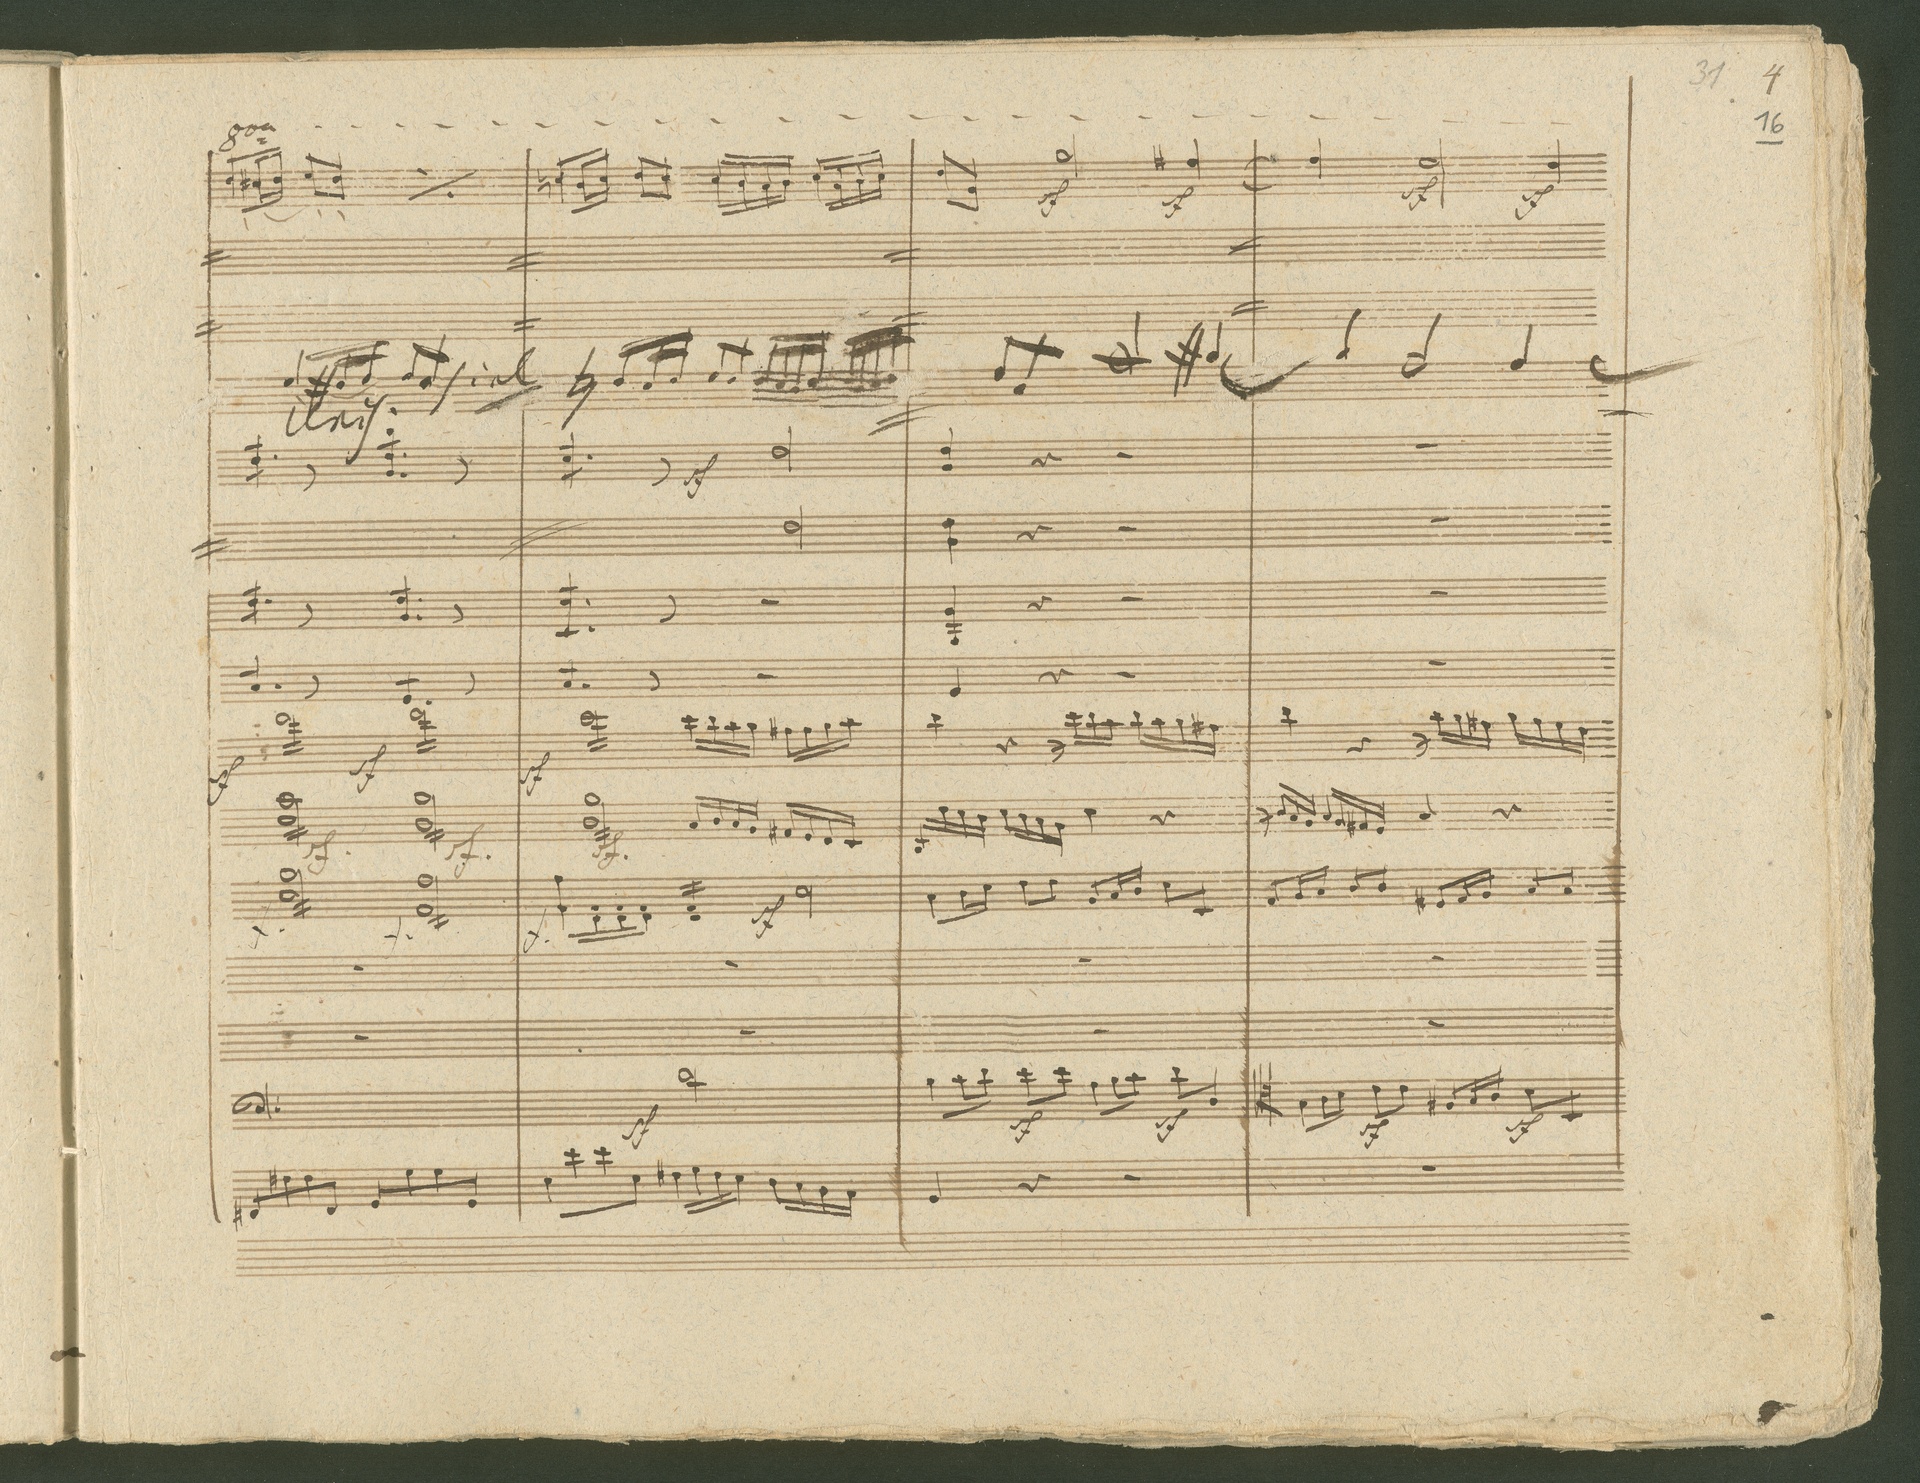 31. 4
16
8va
sf sf sf sf
sf
sf sf sf
sf. sf. sf.
f. f. f. sf
sf sf sf sf sf